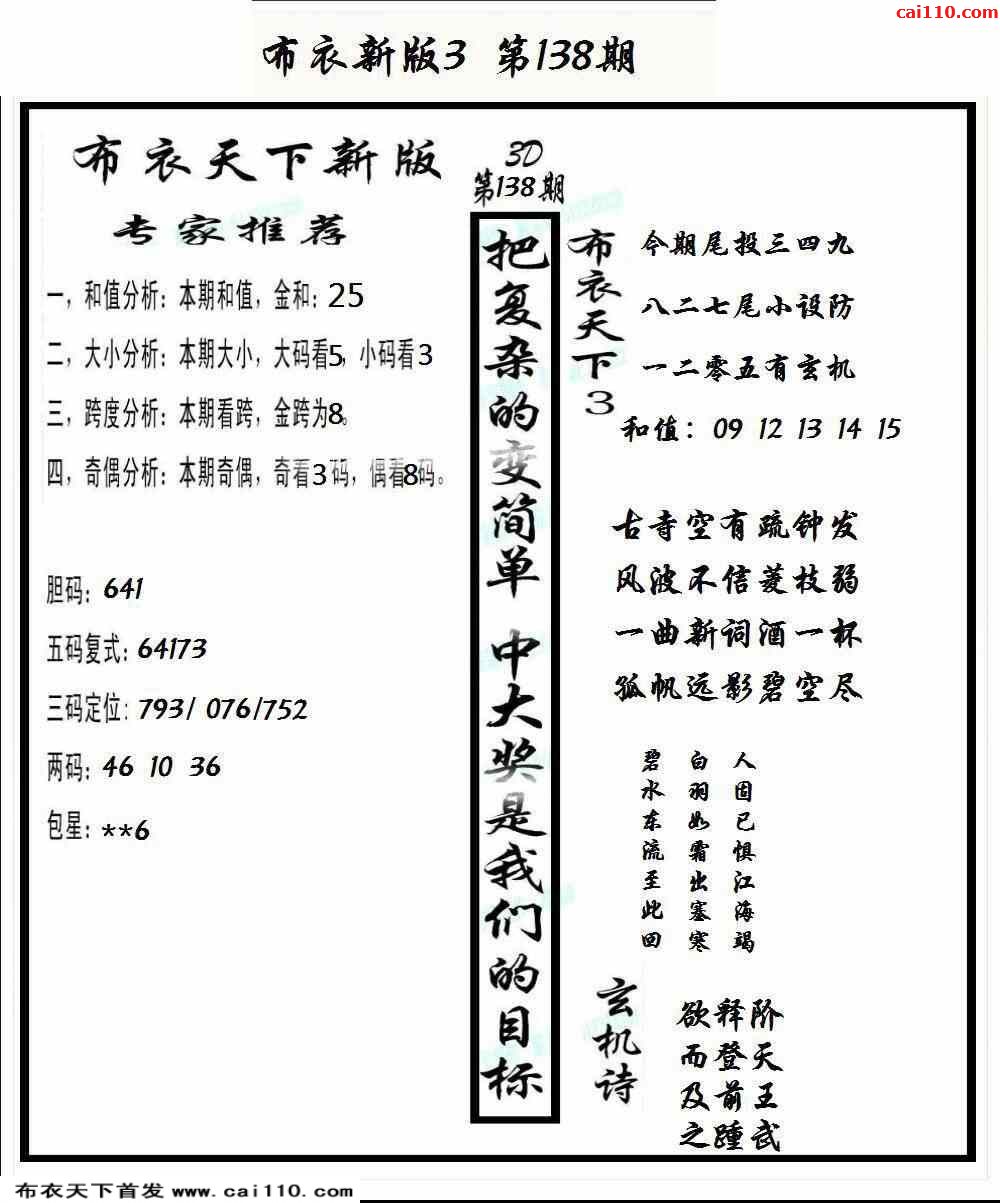 cai110.com
布衣新版3 第138期
布衣天下新版
专家推荐
一，和值分析：本期和值，金和：25
二，大小分析：本期大小，大码看5，小码看3
三，跨度分析：本期看跨，金跨为8。
四，奇偶分析：本期奇偶，奇看3码，偶看8码。
胆码：641
五码复式：64173
三码定位：793/ 076/752
两码：46 10 36
包星：**6
3D
第138期
把复杂的变简单 中大奖是我们的目标
布衣天下3
今期尾投三四九
八二七尾小设防
一二零五有玄机
和值：09 12 13 14 15
古寺空有疏钟发
风波不信菱枝弱
一曲新词酒一杯
孤帆远影碧空尽
人固已惧江海竭
白羽如霜出塞寒
碧水东流至此回
玄机诗
欲释阶
而登天
及前王
之踵武
布衣天下首发 www.cai110.com